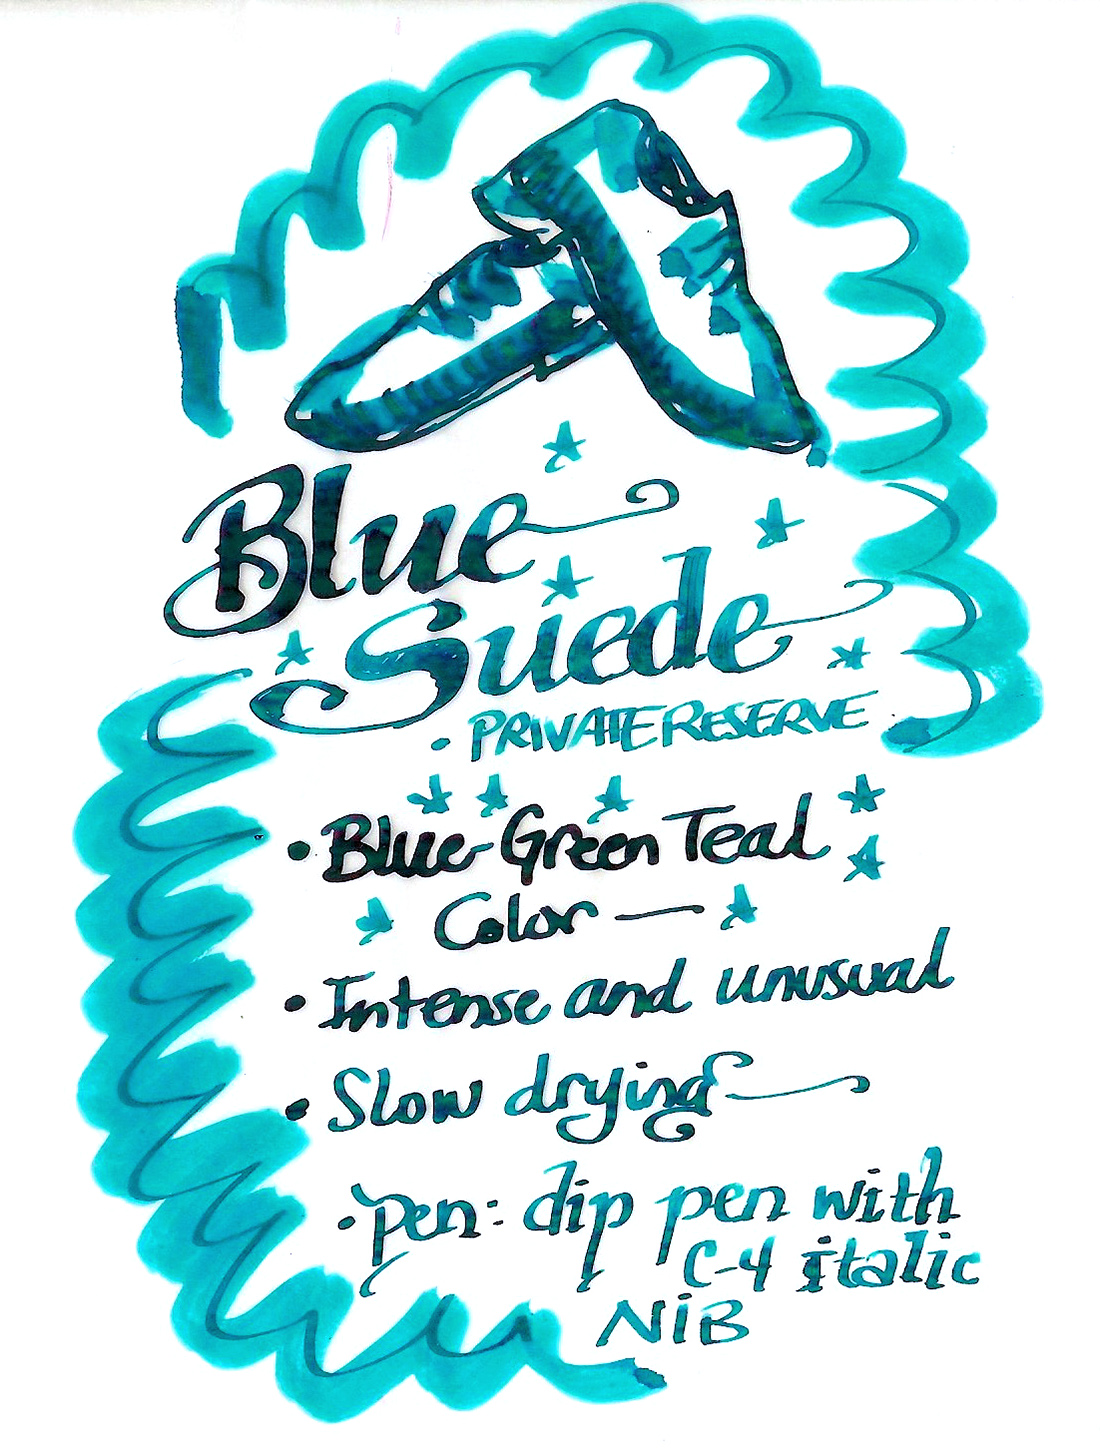 Blue
Suede
• PRIVATE RESERVE
• Blue-Green Teal
Color —
• Intense and unusual
• Slow drying
• Pen: dip pen with
C-4 italic
NiB